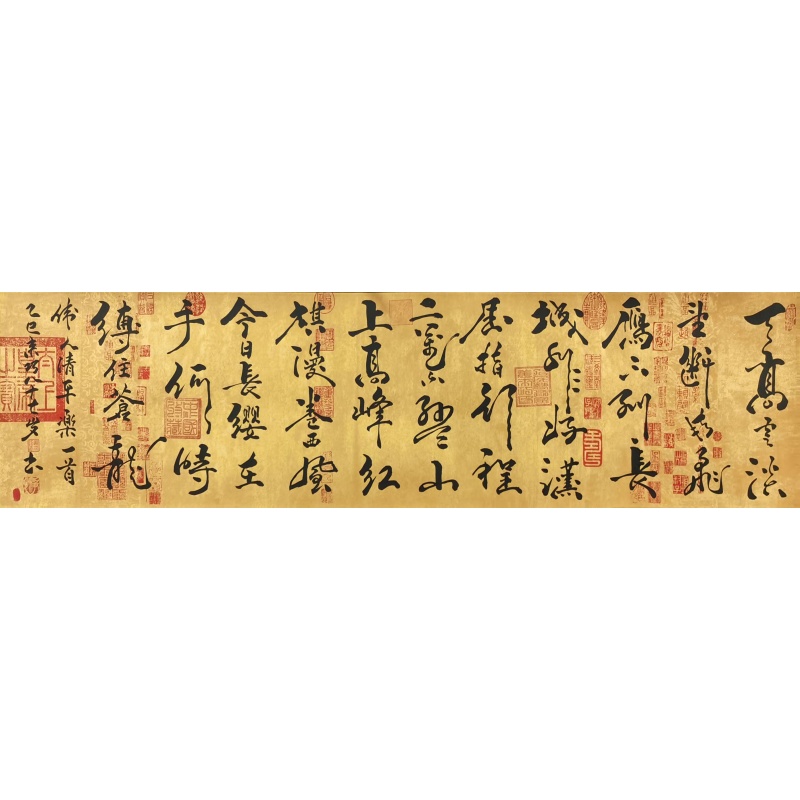 天高雲淡
望斷南飛
雁不到長
城非好漢
屈指行程
二萬六盤山
上高峰紅
旗漫卷西風
今日長纓在
手何時
縛住蒼龍
偉人清平樂一首
乙巳 八十七岁书